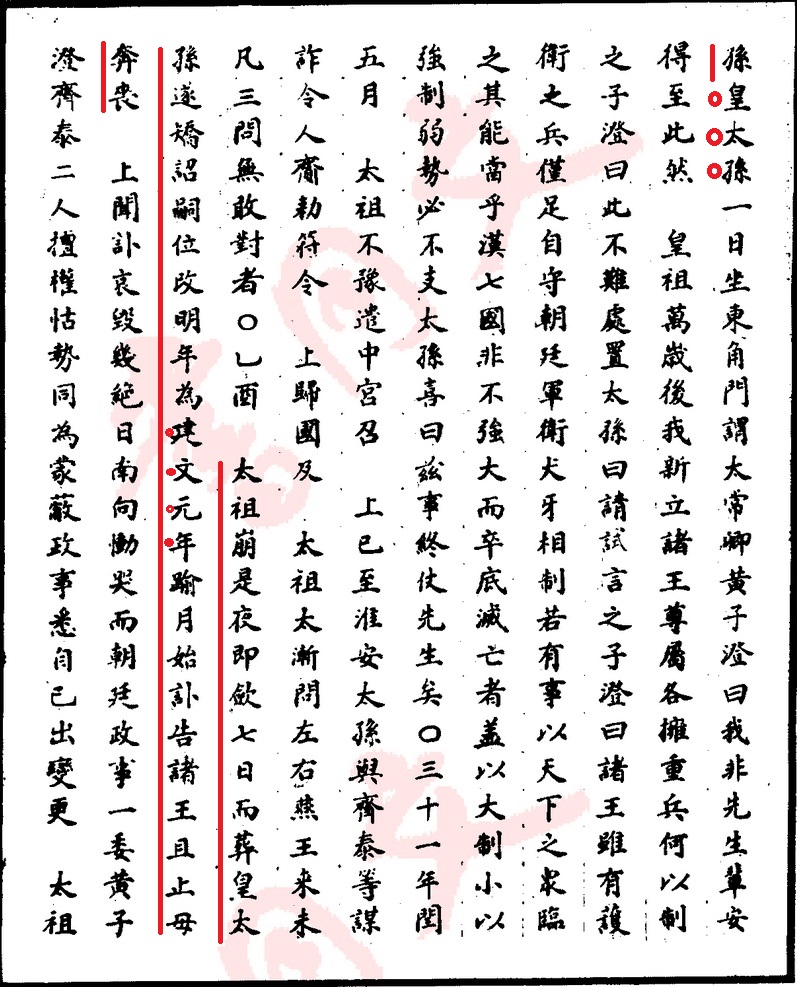 孫皇太孫一日坐東角門謂太常卿黃子澄曰我非先生輩安
得至此然　皇祖萬歲後我新立諸王尊屬各擁重兵何以制
之子澄曰此不難處置太孫曰請試言之子澄曰諸王雖有護
衛之兵僅足自守朝廷軍衛犬牙相制若有事以天下之衆臨
之其能當乎漢七國非不強大而卒底滅亡者盖以大制小以
強制弱勢必不支太孫喜曰兹事終仗先生矣○三十一年閏
五月　太祖不豫遣中宮召　上已至淮安太孫與齊泰等謀
詐令人齎勑符令　上歸國及　太祖太漸問左右燕王来未
凡三問無敢對者○乙酉　太祖崩是夜即歛七日而葬皇太
孫遂矯詔嗣位改明年為建文元年踰月始訃告諸王且止毋
奔喪　上聞訃哀毀幾絕日南向慟哭而朝廷政事一委黃子
澄齊泰二人擅權怙勢同為蒙蔽政事悉自己出變更　太祖